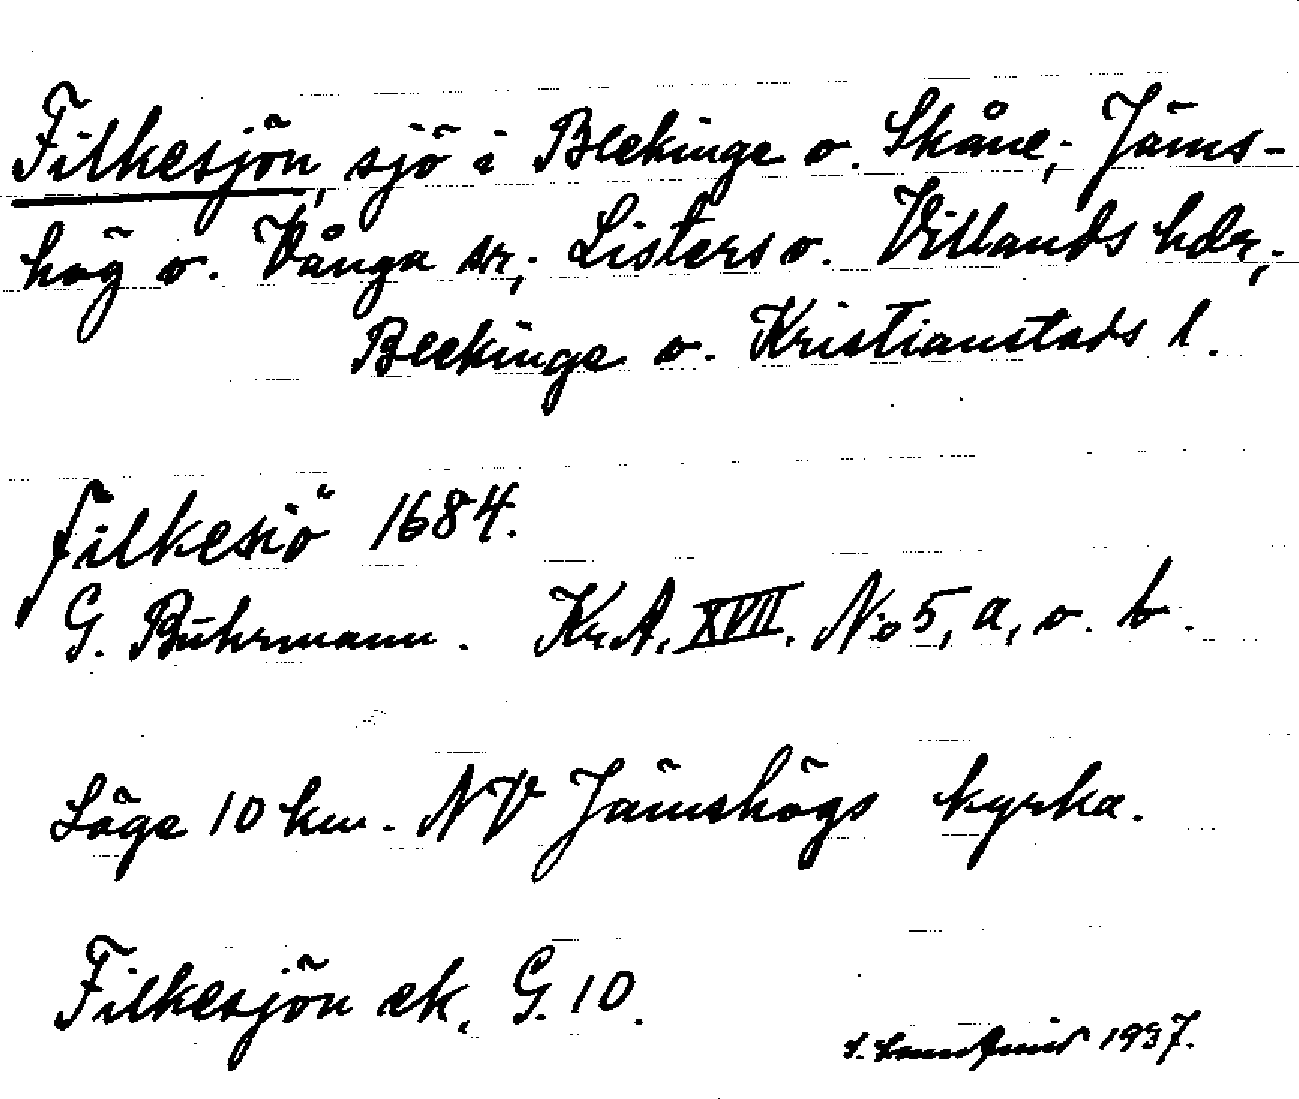 Filkesjön, sjö i Blekinge o. Skåne; Jäms-
hög o. Vånga snr; Listers o. Villands hdr;
Blekinge o. Kristianstads l.
Filkesiö 1684.
G. Buhrmann. Kr.A. XVII. No 5, a, o. b.
Läge 10 km. NV Jämshögs kyrka.
Filkesjön ek. G. 10.
1937.